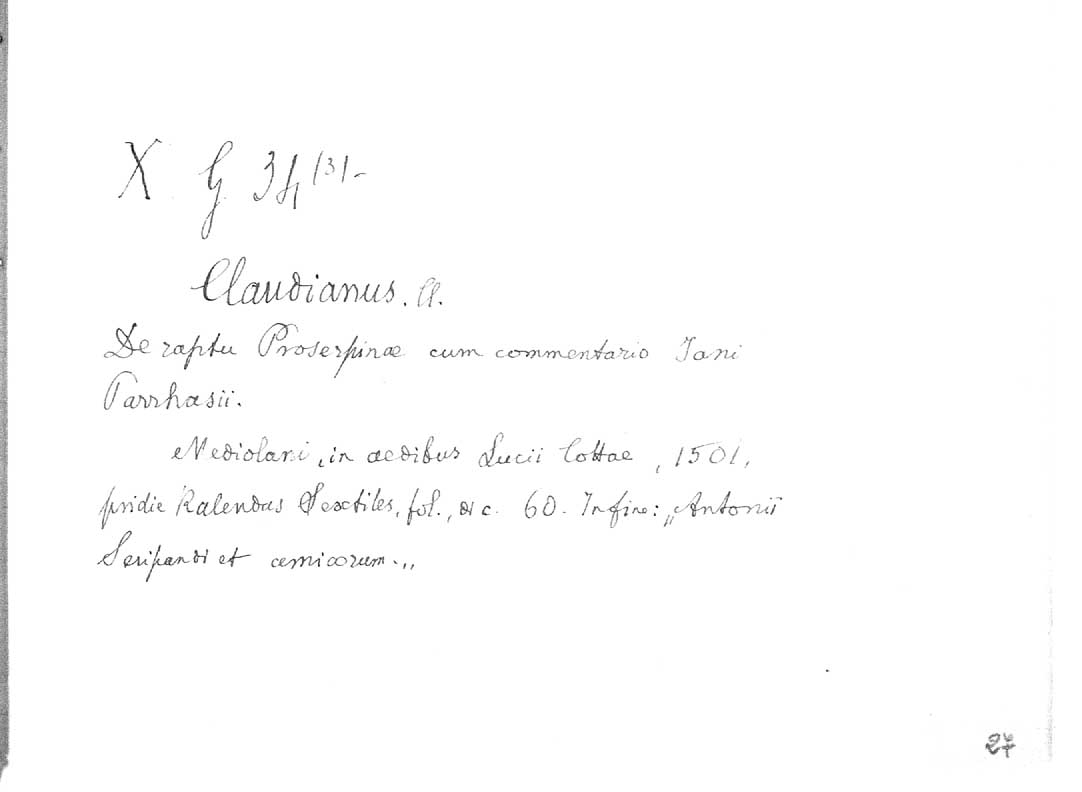 X G 34 (3)-
Claudianus. Cl.
De raptu Proserpinae cum commentario Jani
Parrhasii.
Mediolani, in aedibus Lucii Cottae, 1501,
pridie Kalendas Sextiles, fol., di c. 60. In fine: „Antonii
Seripandi et amicorum.„
27